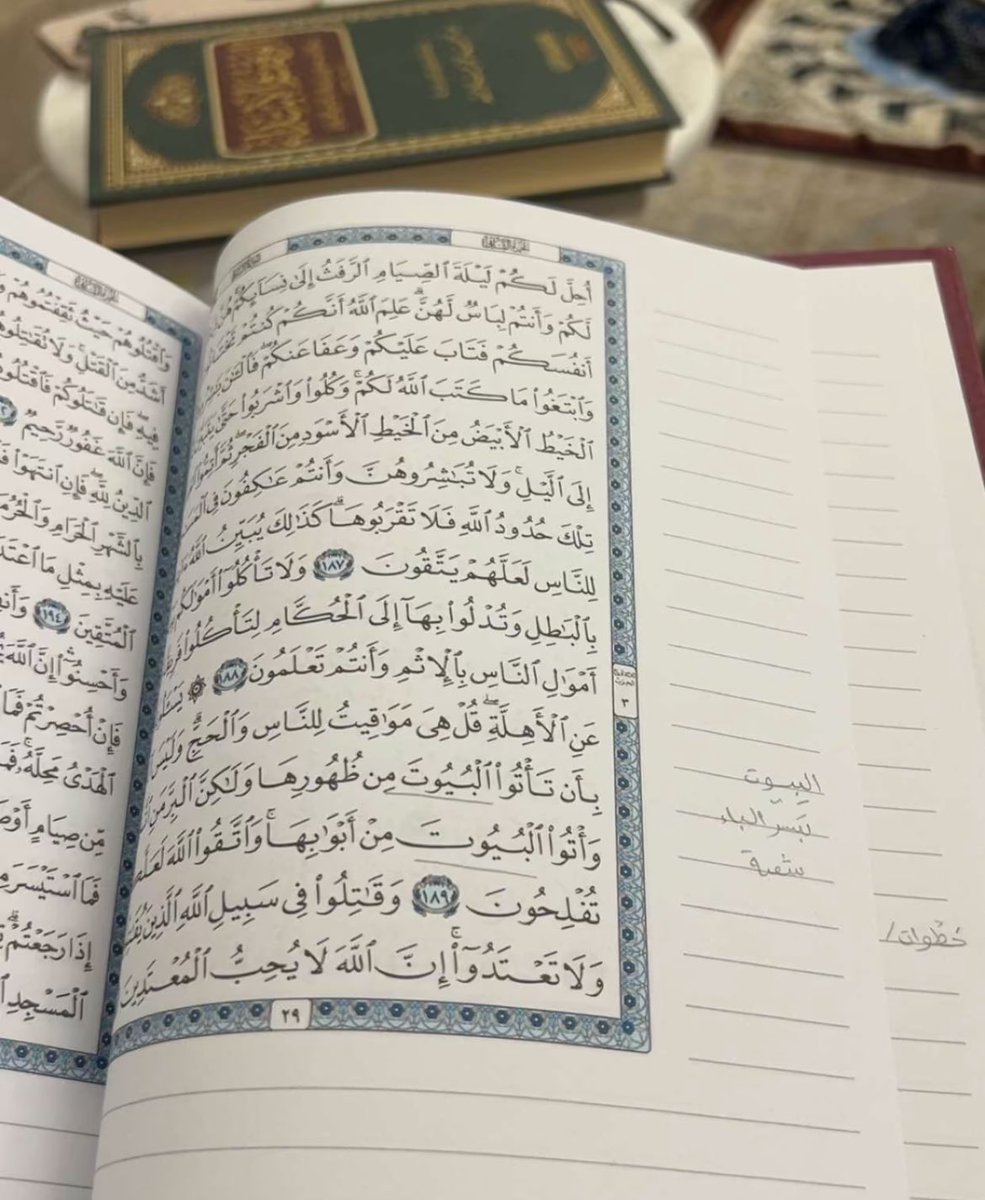 أُحِلَّ لَكُمْ لَيْلَةَ ٱلصِّيَامِ ٱلرَّفَثُ إِلَىٰ نِسَآئِكُمْ هُنَّ
لَكُمْ وَأَنتُمْ لِبَاسٌ لَّهُنَّ عَلِمَ ٱللَّهُ أَنَّكُمْ كُنتُمْ
أَنفُسَكُمْ فَتَابَ عَلَيْكُمْ وَعَفَا عَنكُمْ فَٱلْـَٰٔنَ
وَٱبْتَغُوا۟ مَا كَتَبَ ٱللَّهُ لَكُمْ وَكُلُوا۟ وَٱشْرَبُوا۟ حَتَّىٰ
ٱلْخَيْطُ ٱلْأَبْيَضُ مِنَ ٱلْخَيْطِ ٱلْأَسْوَدِ مِنَ ٱلْفَجْرِ ثُمَّ أَتِمُّوا۟
إِلَى ٱلَّيْلِ وَلَا تُبَٰشِرُوهُنَّ وَأَنتُمْ عَٰكِفُونَ فِى
تِلْكَ حُدُودُ ٱللَّهِ فَلَا تَقْرَبُوهَا كَذَٰلِكَ يُبَيِّنُ ٱللَّهُ
لِلنَّاسِ لَعَلَّهُمْ يَتَّقُونَ ١٨٧ وَلَا تَأْكُلُوٓا۟ أَمْوَٰلَكُم
بِٱلْبَٰطِلِ وَتُدْلُوا۟ بِهَآ إِلَى ٱلْحُكَّامِ لِتَأْكُلُوا۟
أَمْوَٰلِ ٱلنَّاسِ بِٱلْإِثْمِ وَأَنتُمْ تَعْلَمُونَ ١٨٨ ۞
عَنِ ٱلْأَهِلَّةِ قُلْ هِىَ مَوَٰقِيتُ لِلنَّاسِ وَٱلْحَجِّ وَلَيْسَ
بِأَن تَأْتُوا۟ ٱلْبُيُوتَ مِن ظُهُورِهَا وَلَٰكِنَّ ٱلْبِرَّ مَنِ
وَأْتُوا۟ ٱلْبُيُوتَ مِنْ أَبْوَٰبِهَا وَٱتَّقُوا۟ ٱللَّهَ
تُفْلِحُونَ ١٨٩ وَقَٰتِلُوا۟ فِى سَبِيلِ ٱللَّهِ ٱلَّذِينَ
وَلَا تَعْتَدُوٓا۟ إِنَّ ٱللَّهَ لَا يُحِبُّ ٱلْمُعْتَدِينَ
٢٩
البيوت
بكسر الباء
شعبة
خطوات/
وَٱقْتُلُوهُمْ حَيْثُ ثَقِفْتُمُوهُمْ
أَشَدُّ مِنَ ٱلْقَتْلِ وَلَا تُقَٰتِلُوهُمْ
فِيهِ فَإِن قَٰتَلُوكُمْ فَٱقْتُلُوهُمْ
فَإِنَّ ٱللَّهَ غَفُورٌ رَّحِيمٌ
ٱلدِّينُ لِلَّهِ فَإِنِ ٱنتَهَوْا۟
بِٱلشَّهْرِ ٱلْحَرَامِ
عَلَيْهِ بِمِثْلِ مَا ٱعْتَدَىٰ
ٱلْمُتَّقِينَ ١٩٤
وَأَحْسِنُوٓا۟ إِنَّ ٱللَّهَ
فَإِنْ أُحْصِرْتُمْ فَمَا
ٱلْهَدْىُ مَحِلَّهُۥ
مِّن صِيَامٍ أَوْ
فَمَا ٱسْتَيْسَرَ
إِذَا رَجَعْتُمْ
ٱلْمَسْجِدِ